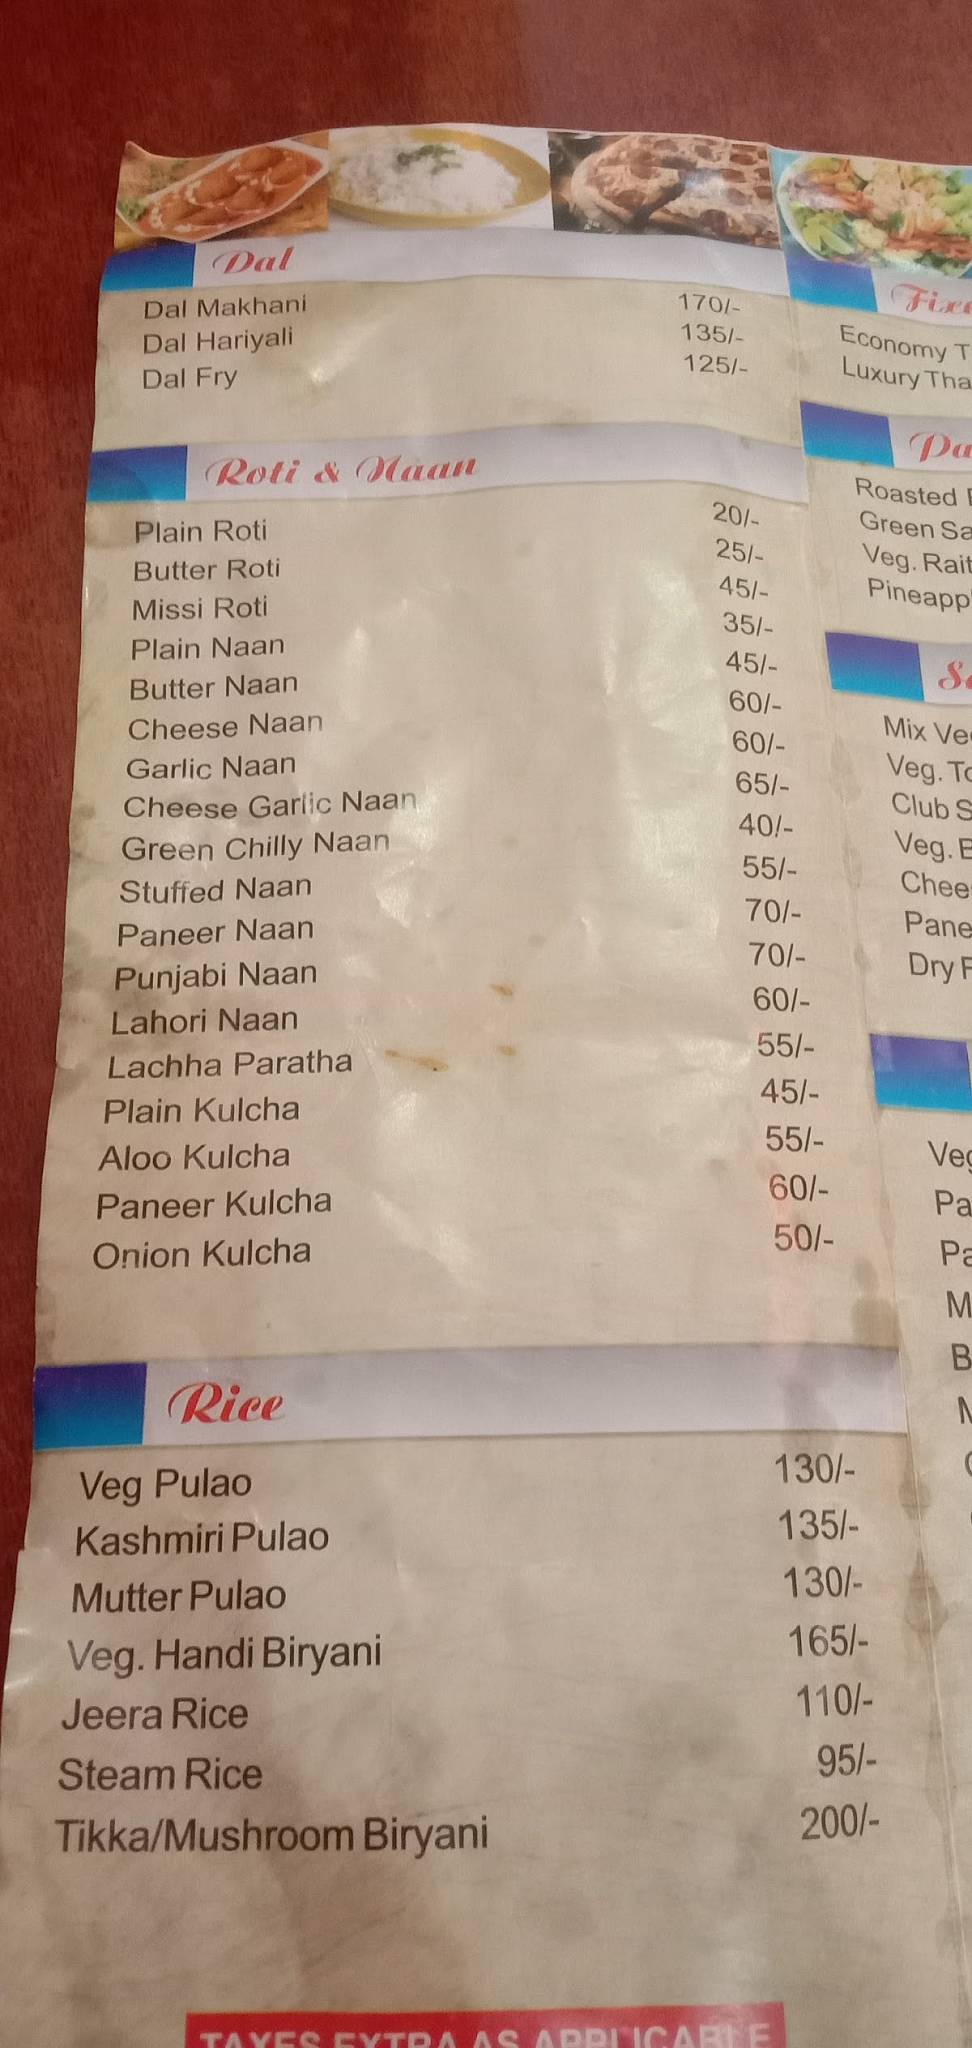 Dal
Dal Makhani 170/-
Dal Hariyali 135/-
Dal Fry 125/-
Roti & Naan
Plain Roti 20/-
Butter Roti 25/-
Missi Roti 45/-
Plain Naan 35/-
Butter Naan 45/-
Cheese Naan 60/-
Garlic Naan 60/-
Cheese Garlic Naan 65/-
Green Chilly Naan 40/-
Stuffed Naan 55/-
Paneer Naan 70/-
Punjabi Naan 70/-
Lahori Naan 60/-
Lachha Paratha 55/-
Plain Kulcha 45/-
Aloo Kulcha 55/-
Paneer Kulcha 60/-
Onion Kulcha 50/-
Rice
Veg Pulao 130/-
Kashmiri Pulao 135/-
Mutter Pulao 130/-
Veg. Handi Biryani 165/-
Jeera Rice 110/-
Steam Rice 95/-
Tikka/Mushroom Biryani 200/-
TAXES EXTRA AS APPLICABLE
Economy
Luxury
Roasted
Green
Veg.
Mix
Veg.
Club
Veg.
Dry